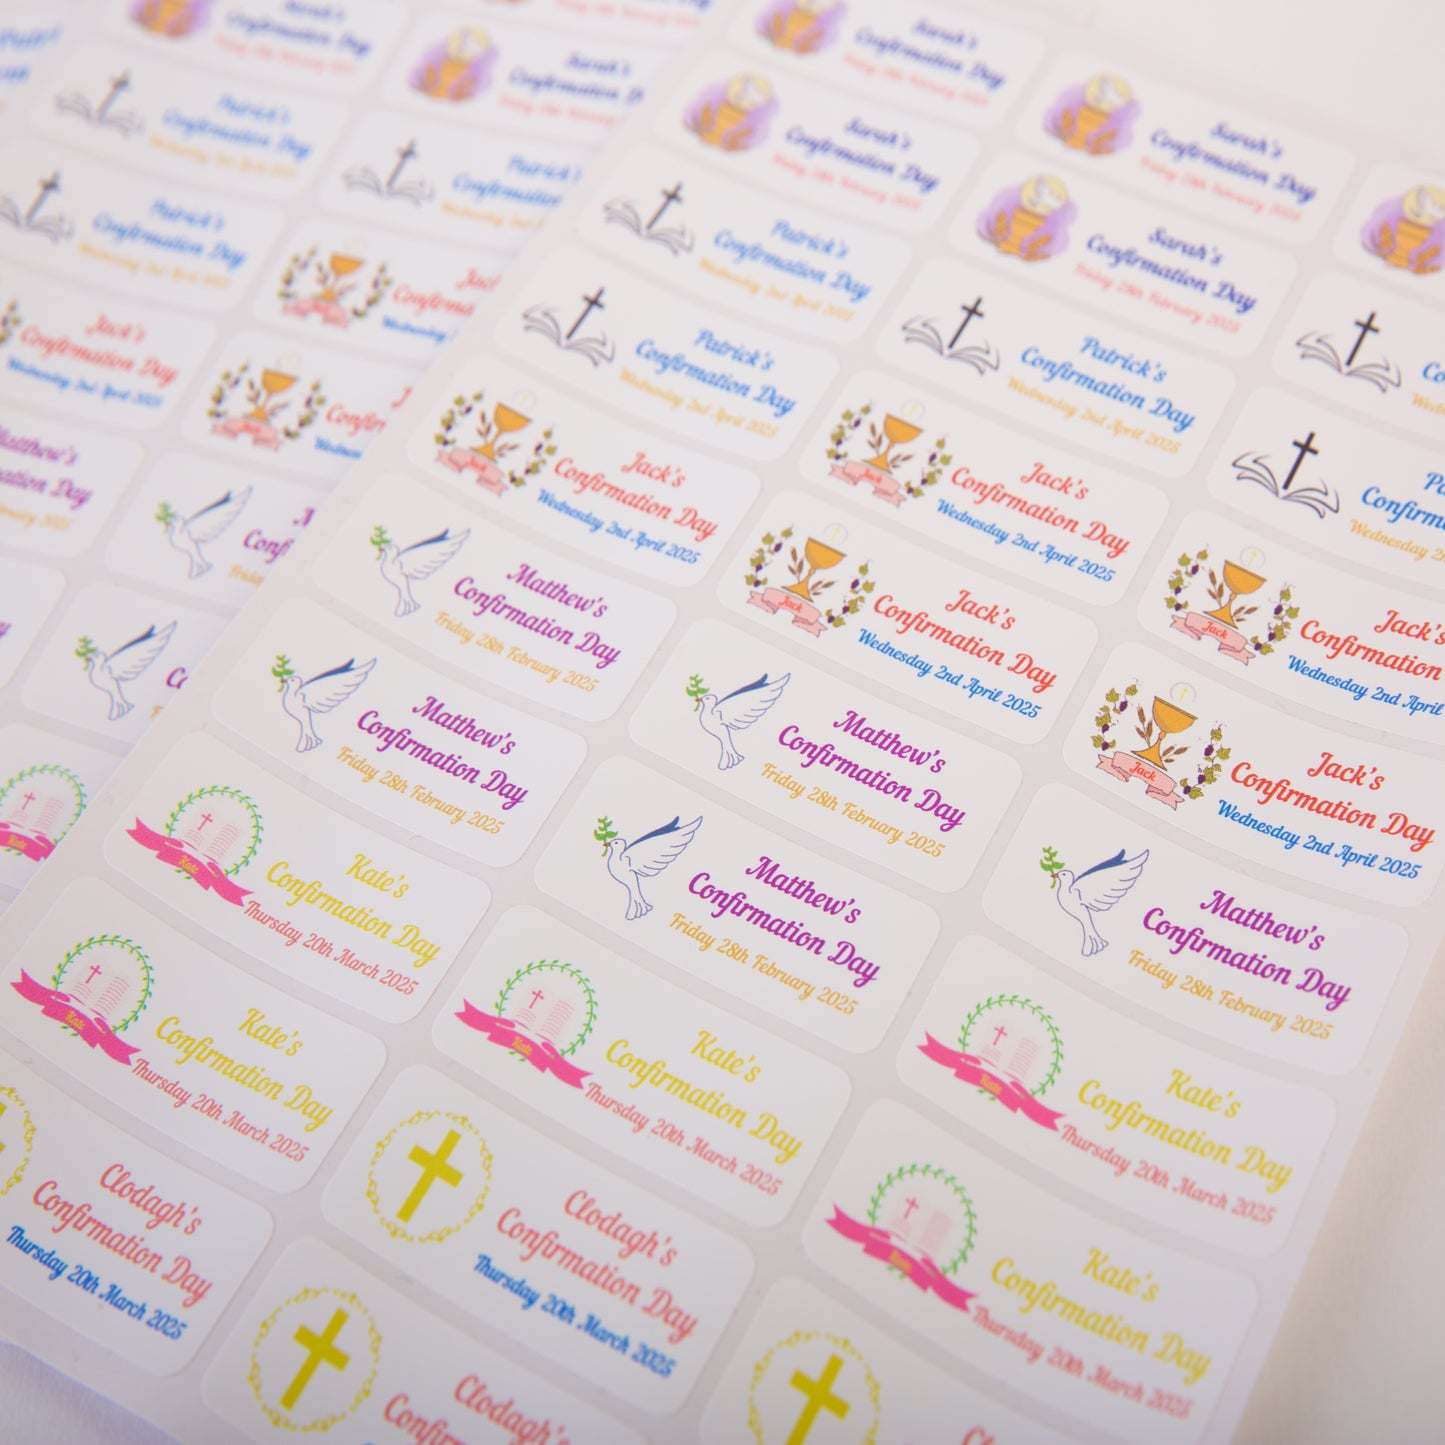 Sarah's
Confirmation Day
Patrick's
Confirmation Day
Wednesday 2nd April 2025
Patrick's
Confirmation Day
Wednesday 2nd April 2025
Jack's
Confirmation Day
Wednesday 2nd April 2025
Matthew's
Sarah's
Confirmation
Patrick's
Confirmation
Sarah's
Confirmation Day
Friday 28th February 2025
Sarah's
Confirmation Day
Friday 28th February 2025
Patrick's
Confirmation Day
Wednesday 2nd April 2025
Patrick's
Confirmation Day
Wednesday 2nd April 2025
Jack
Jack's
Confirmation Day
Wednesday 2nd April 2025
Matthew's
Confirmation Day
Friday 28th February 2025
Matthew's
Confirmation Day
Friday 28th February 2025
Kate
Kate's
Confirmation Day
Thursday 20th March 2025
Kate
Kate's
Confirmation Day
Thursday 20th March 2025
Clodagh's
Confirmation Day
Thursday 20th March 2025
Sarah's
Confirmation Day
Friday 28th February 2025
Sarah's
Confirmation Day
Friday 28th February 2025
Patrick's
Confirmation Day
Wednesday 2nd April 2025
Jack
Jack's
Confirmation Day
Wednesday 2nd April 2025
Jack
Jack's
Confirmation Day
Wednesday 2nd April 2025
Matthew's
Confirmation Day
Friday 28th February 2025
Matthew's
Confirmation Day
Friday 28th February 2025
Kate
Kate's
Confirmation Day
Thursday 20th March 2025
Clodagh's
Confirmation Day
Thursday 20th March 2025
Clodagh's
Confirmation
Jack
Jack's
Confirmation
Wednesday 2nd April
Jack
Jack's
Confirmation Day
Wednesday 2nd April 2025
Matthew's
Confirmation Day
Friday 28th February 2025
Kate
Kate's
Confirmation Day
Thursday 20th March 2025
Kate
Kate's
Confirmation Day
Thursday 20th March 2025
Clodagh's